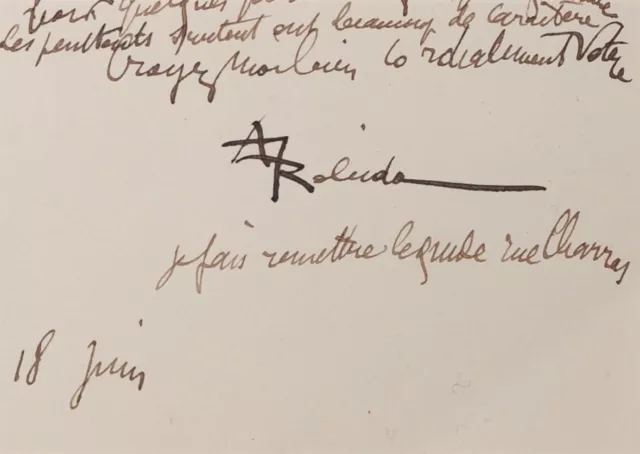 quelques
Les pendants surtout ont beaucoup de caractère
Croyez Monsieur Cordialement Votre
A Robida
je fais remettre le guide rue Charras
18 Juin